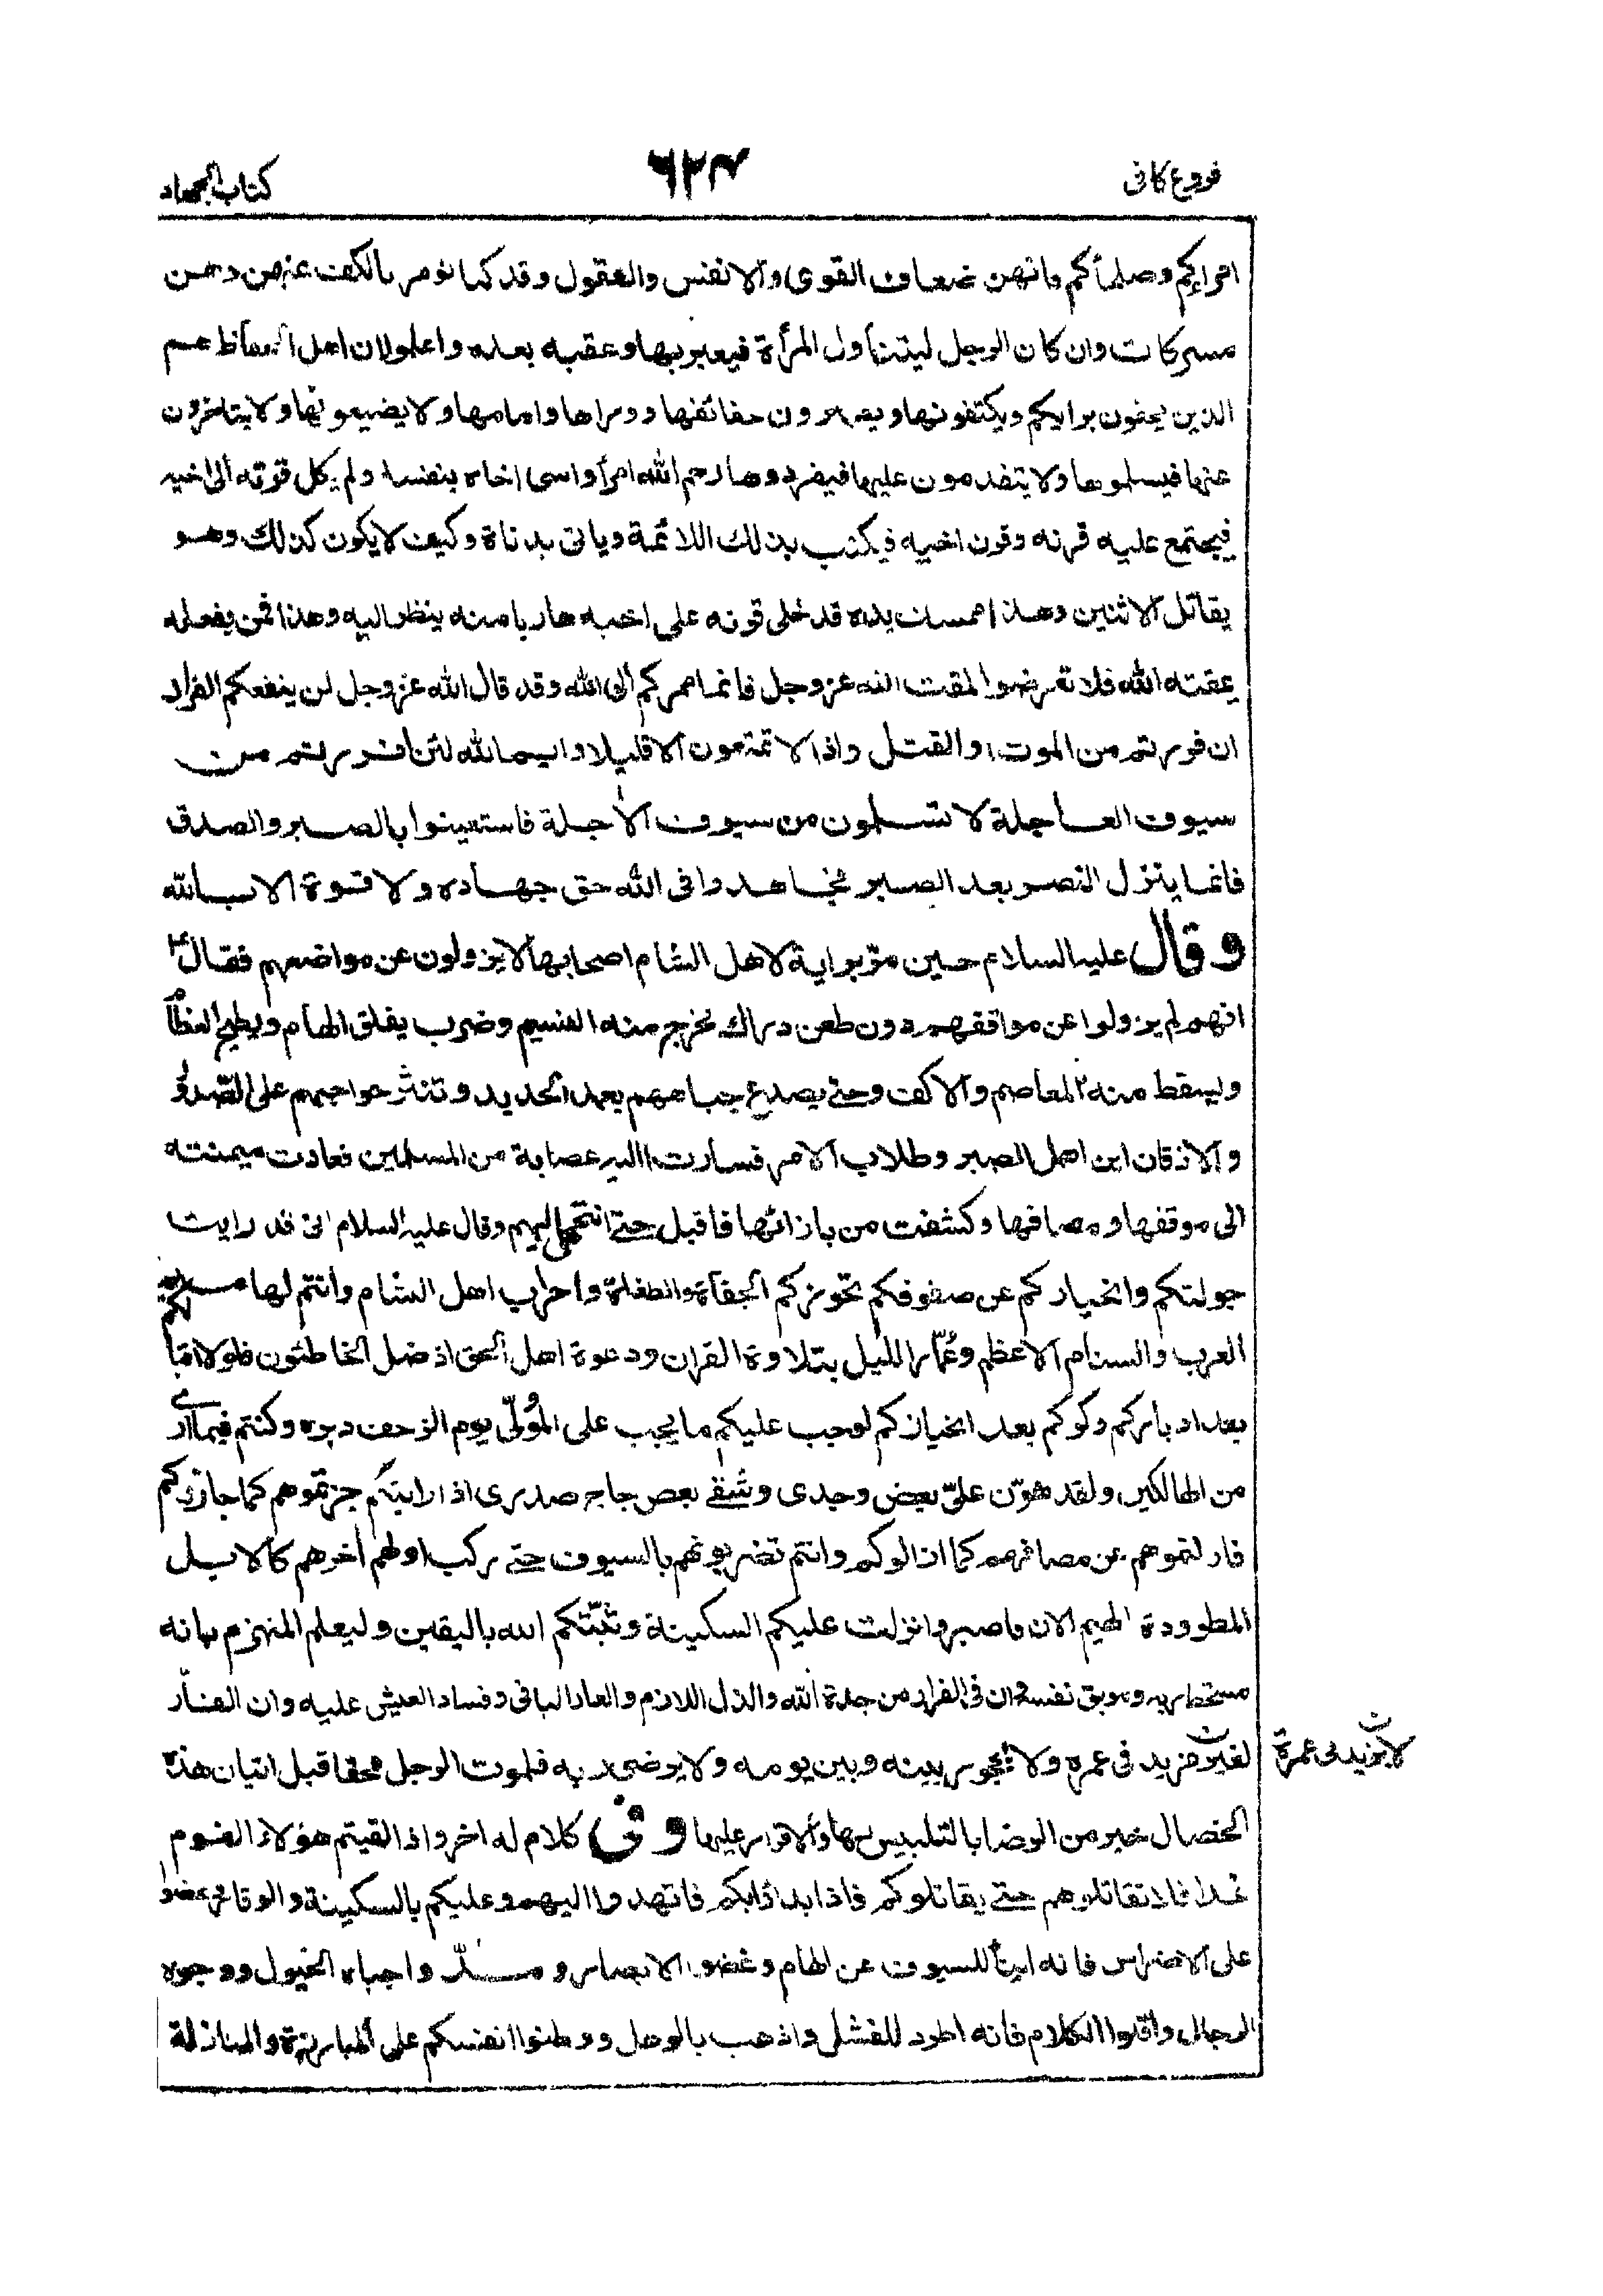 فروع كافى
٦٢٣
كتاب الجهاد
امراءكم وصلحاءكم فانهن ضعاف القوى والانفس والعقول وقد كنا نؤمر بالكف عنهن وهن
مشركات وان كان الرجل ليتناول المرأة فيعير بها وعقبه بعده واعلموا ان اهل الحفاظ هم
الذين يحفون براياتكم ويكتنفونها ويصيرون حفافيها ووراءها وامامها ولا يضيعونها ولا يتاخرون
عنها فيسلموها ولا يتقدمون عليها فيفردوها رحم الله امرأ واسى اخاه بنفسه ولم يكل قرنه الى اخيه
فيجتمع عليه قرنه وقرن اخيه فيكتسب بذلك اللائمة وياتى بدناة وكيف لا يكون كذلك وهو
يقاتل الاثنين وهذا ممسك يده قد خلى قرنه على اخيه هاربا منه ينظر اليه وهذا فمن يفعله
يمقته الله فلا تعرضوا لمقت الله عز وجل فانما ممركم الى الله وقد قال الله عز وجل لن ينفعكم الفرار
ان فررتم من الموت او القتل واذا لا تمتعون الا قليلا وايم الله لئن فررتم من
سيوف العاجلة لا تسلمون من سيوف الاجلة فاستعينوا بالصبر والصدق
فانما ينزل النصر بعد الصبر فجاهدوا فى الله حق جهاده ولا قوة الا بالله
وقال عليه السلام حين مرّ براية لاهل الشام اصحابها لا يزولون عن مواضعهم فقال ع
انهم لم يزولوا عن مواقفهم دون طعن دراك يخرج منه النسيم وضرب يفلق الهام ويطيح العظام
ويسقط منه المعاصم والاكف وحتى يصدع جباههم بعمد الحديد وتنثر حواجبهم على الصّدور
والاذقان اين اهل الصبر وطلاب الامر فسارت اليه عصابة من المسلمين فعادت ميمنته
الى موقفها ومصافها وكشفت من بازائها فاقبل حتى انتهى اليهم وقال عليه السلام انى قد رايت
جولتكم وانحيازكم عن صفوفكم تحوزكم الجفاة والطغاة واعراب اهل الشام وانتم لهاميم
العرب والسنام الاعظم وعُمّار الليل بتلاوة القران ودعوة اهل الحق اذ ضل الخاطئون فلولا اقبالكم
بعد ادباركم وكركم بعد انحيازكم لوجب عليكم ما يجب على المُولّى يوم الزحف دبره وكنتم فيما ارى
من الهالكين ولقد هوّن علىّ بعض وجدى وشفى بعض حاج صدرى اذا رايتكم حزتموهم كما حازوكم
فازلتموهم عن مصافهم كما ازالوكم وانتم تضربونهم بالسيوف حتى يركب اولهم اخرهم كالابل
المطرودة الهيم الان فاصبروا نزلت عليكم السكينة وثبّتكم الله باليقين وليعلم المنهزم بانه
مسخط ربه وموبق نفسه وان فى الفرار من جدة الله والذل اللازم والعار الباقى وفساد العيش عليه وان الفار
لغير مزيد فى عمره ولا محجور بينه وبين يومه ولا يرضى ربه فلموت الرجل محقا قبل اتيان هذه
لا يزيد فى عمره ن
الخصال خير من الرضا بالتلبيس بها والاقرار عليها وفى كلام له اخر واذا لقيتم هؤلاء القوم
غدا فلا تقاتلوهم حتى يقاتلوكم فاذا بداوا بكم فانهدوا اليهم وعليكم بالسكينة والوقار وعضوا
على الاضراس فانه انبأ للسيوف عن الهام وغضوا الابصار ومدّوا جباه الخيول ووجوه
الرجال واقلوا الكلام فانه اطرد للفشل واذهب بالوهل ووطنوا انفسكم على المبارزة والمنازلة